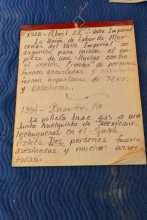 1928 - Abril 22 - Valle Imperial
La Unión de Labor de Mex-
icanos del Valle Imperial, se
organizó para iniciar el em-
piezo de una Huelga contra
el melón. Cientos de personas
fueron arrestadas y
fueron importadas de Texas
y Oklahoma.
1934 - Brawley, Ca
La policía hace gas a una
Junta huelguista de Mexicanos
lechugueros en el Salón
Azteca. Dos personas fueron
asesinadas y muchas arres-
tadas.